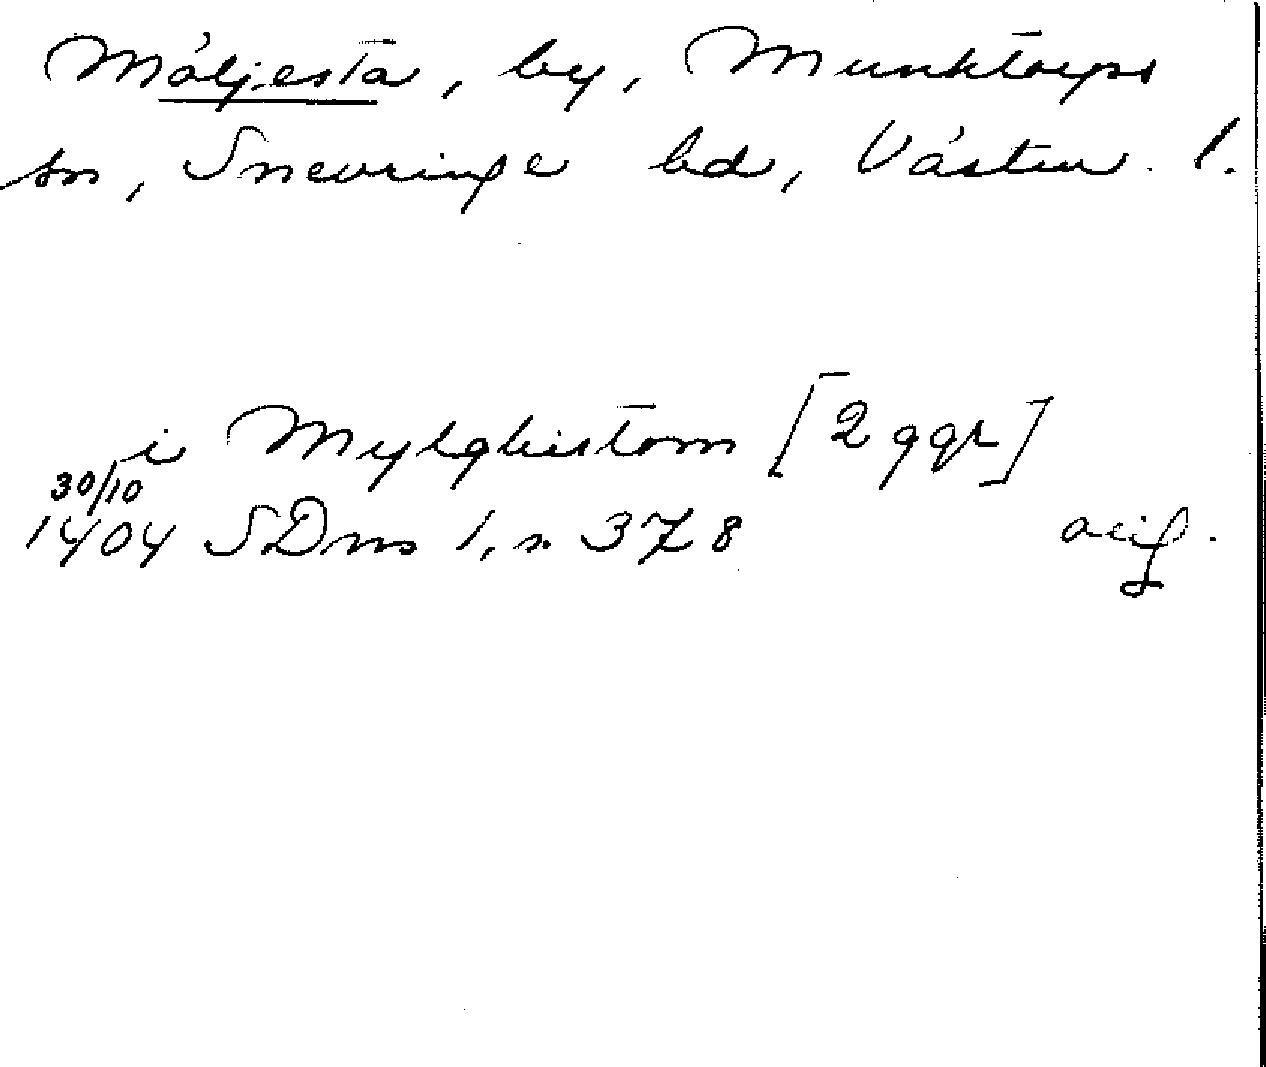 Mäljesta, by, Munktorps
sn, Snevringe hd, Västm. l.
i Mylghistom [2 ggr]
30/10
1404 SDns 1, s. 378 avig.